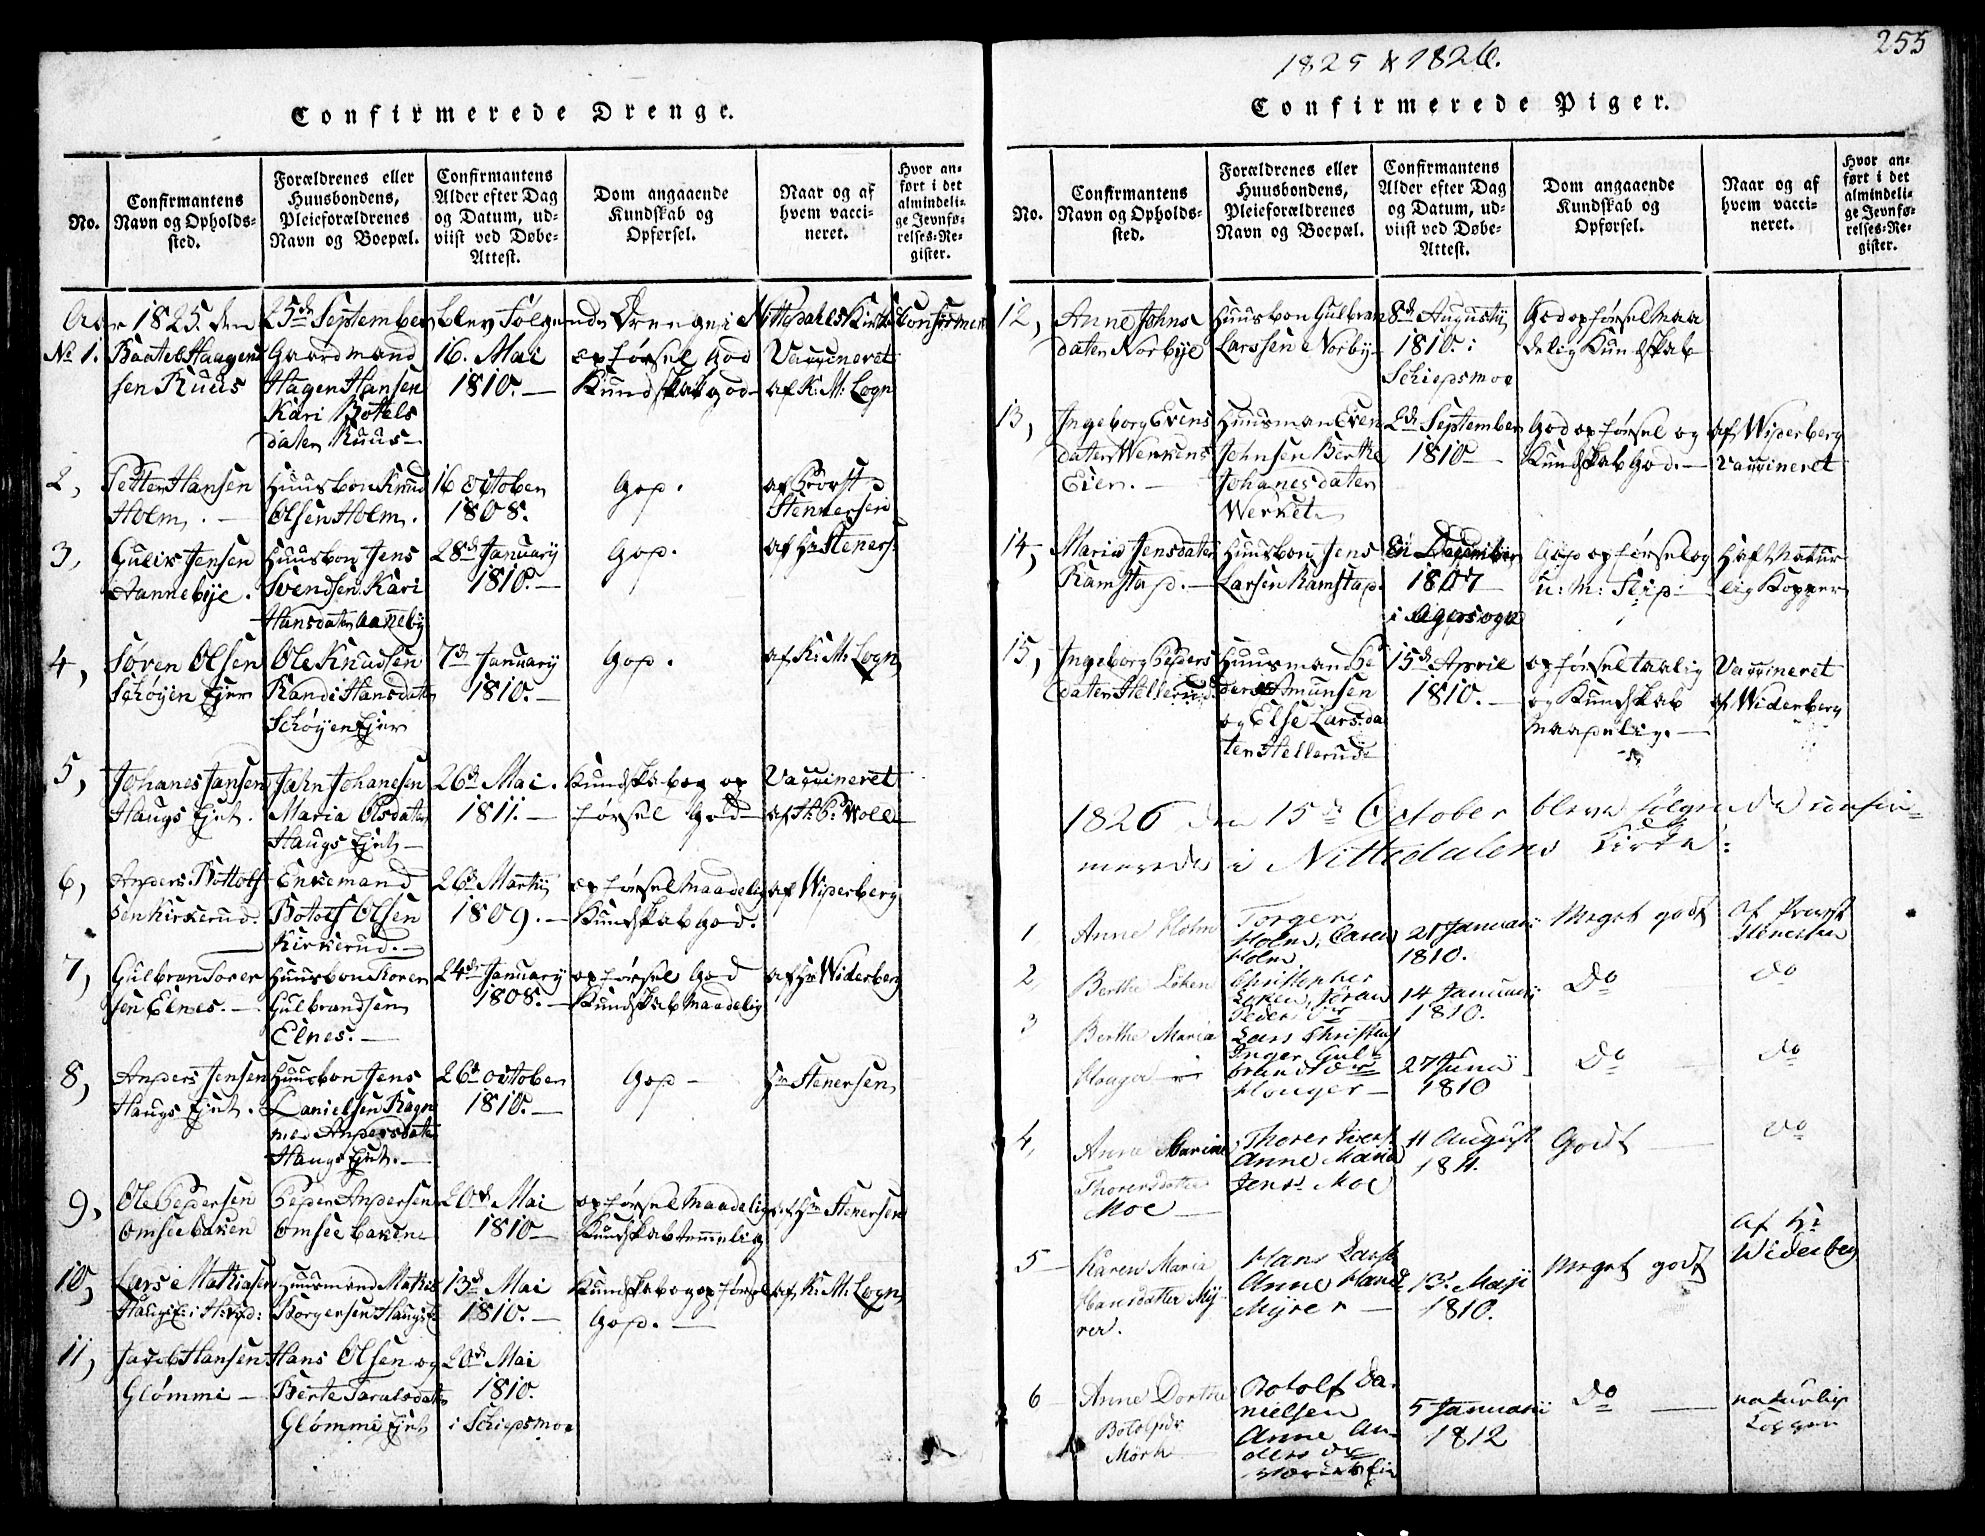 255
1825 & 1826.
Confirmerede Drenge.
No.
Confirmantens
Navn og Opholds-
sted.
Forældrenes eller
Huusbondens,
Pleieforældrenes
Navn og Boepæl.
Confirmantens
Alder efter Dag
og Datum, ud-
viist ved Døbe-
Attest.
Dom angaaende
Kundskab og
Opførsel.
Naar og af
hvem vacci-
neret.
Hvor an-
ført i det
almindeli-
ge Jevnfø-
relses-Re-
gister.
Aar 1825 den 25de September blev følgende Drenge i Nittedahls Kirke Confirmeret
No 1.
sen Ruus
Gaardmand
Hagen Hansen
Kari Botels
daten Ruus
16. Mai
1810.
opførsel God
Kundskab god
Vaccineret
af K: M: Logn
2,
Petter Hansen
Holm.
Huusbon Knud
Olsen Holm.
16 October
1808.
God.
af Provst
Stenersen
3,
Gulik Jensen
Aannebye.
Huusbon Jens
Svendsen Kari
Hansdaten Aaneby
28de January
1810.
God.
af Hr Steners.
4,
Søren Olsen
Schøyen Ejer
Ole Knudsen
Randi Hansdaten
Schøyen Ejer
7de January
1810.
God.
af K: M: Logn
5,
Johanes Jansen
Haugs Ejet.
Jahn Johanesen
Maria Olsdaten
Haugs Ejet
26de Mai.
1811.
Kundskab og op
førsel God
Vaccineret
6,
Anders Bottols
sen Kirkerud.
Enkemand
Botols Olsen
Kirkerud.
26de Martij
1809.
opførsel Maadelig
Kundskab God.
af Widerberg
7,
Gulbran Torer
sen Elnes.
Huusbon Torer
Gulbrandsen
Elnes.
24de January
1808.
opførsel God
Kundskab Maadelig
af Hr Widerberg
8,
Anders Jensen
Haugs Ejet.
Huusbon Jens
Danielsen Ragn
Haugs Ejet.
26de October
1810.
God
Hr Stenersen
9,
Ole Pedersen
Omseebaken
Peder Andersen
Omseebakene
20de Mai
1810
opførsel Maadelig
Kundskab temmelig
af Hr Stenersen
10,
Lars Mathiasen
Huusmand Mathis
Borgersen Haugs
13de Mai
1810.
Kundskab og opførsel
God.
af K: M: Logn
11,
Jacob Hansen
Glømmi
Hans Olsen og
Berte Taralsdaten
Glømmi Ejet
20de Mai
1810.
i Schiedsmoe
Confirmerede Piger.
No.
Confirmantens
Navn og Opholds-
sted.
Forældrenes eller
Huusbondens,
Pleieforældrenes
Navn og Boepæl.
Confirmantens
Alder efter Dag
og Datum, ud-
viist ved Døbe-
Attest.
Dom angaaende
Kundskab og
Opførsel.
Naar og af
hvem vacci-
neret.
Hvor an-
ført i det
almindeli-
ge Jevnfø-
relses-Re-
gister.
12,
Anne Johns
daten Norbye
Huusbon Gulbran
Larssen Norby
8de Augustij
1810:
Schiedsmoe
God opførsel Maa
delig Kundskab
13,
Ingeborg Evens
daten Werkens
Eier.
Huusman Even
Johnsen Berthe
Johanesdaten
Werket
2de September
1810
God opførsel og
Kundskab God.
af Widerberg
Vaccineret
14,
Maria Jensdaten
Ramstad.
Huusbon Jens
Larsen Ramstad
December
1807
i Agersogn
God opførsel og
u: M: Flid
Haft Natur
lig Kopper
15,
Ingeborg Peders
daten Hellerud.
Huusman Pe
der Amunsen
og Else Larsda
ten Hellerud
15de April
1810.
opførsel taalig
og Kundskab
maadelig.
Vaccineret
af Widerberg
1826 den 15de October bleve følgende confir-
merede i Nittedalens Kirke:
1
Anne Holm
Torger
Holm, Caren
Holm
21 Januari
1810.
Meget godt
af Provst
Stenersen
2
Berthe Løken
Christopher
Løken, Joran
Peders Dr
14 Januarij
1810.
Do
do
3
Berthe Maria
Houger
Lars Christens
Inger Gul-
brands Dr
Houger
27 Juni
1810
Do
do
4,
Anne Marine
Thorersdatter
Moe
Thorer Ivers.
Anne Maria
Jens. Moe
11 August
1811.
Godt
do
5
Karen Maria
Hansdatter My-
rer.
Hans Larss.
Anne Hans D
Myrer
13. Maji
1810.
Meget godt
af Hr
Widerberg
6
Anne Dorthe
Botolfsdr
Mørk
Botolf Da-
nielsen
Anne An-
ders Dr
5 Januarii
1812
Do
naturlig
Kopper